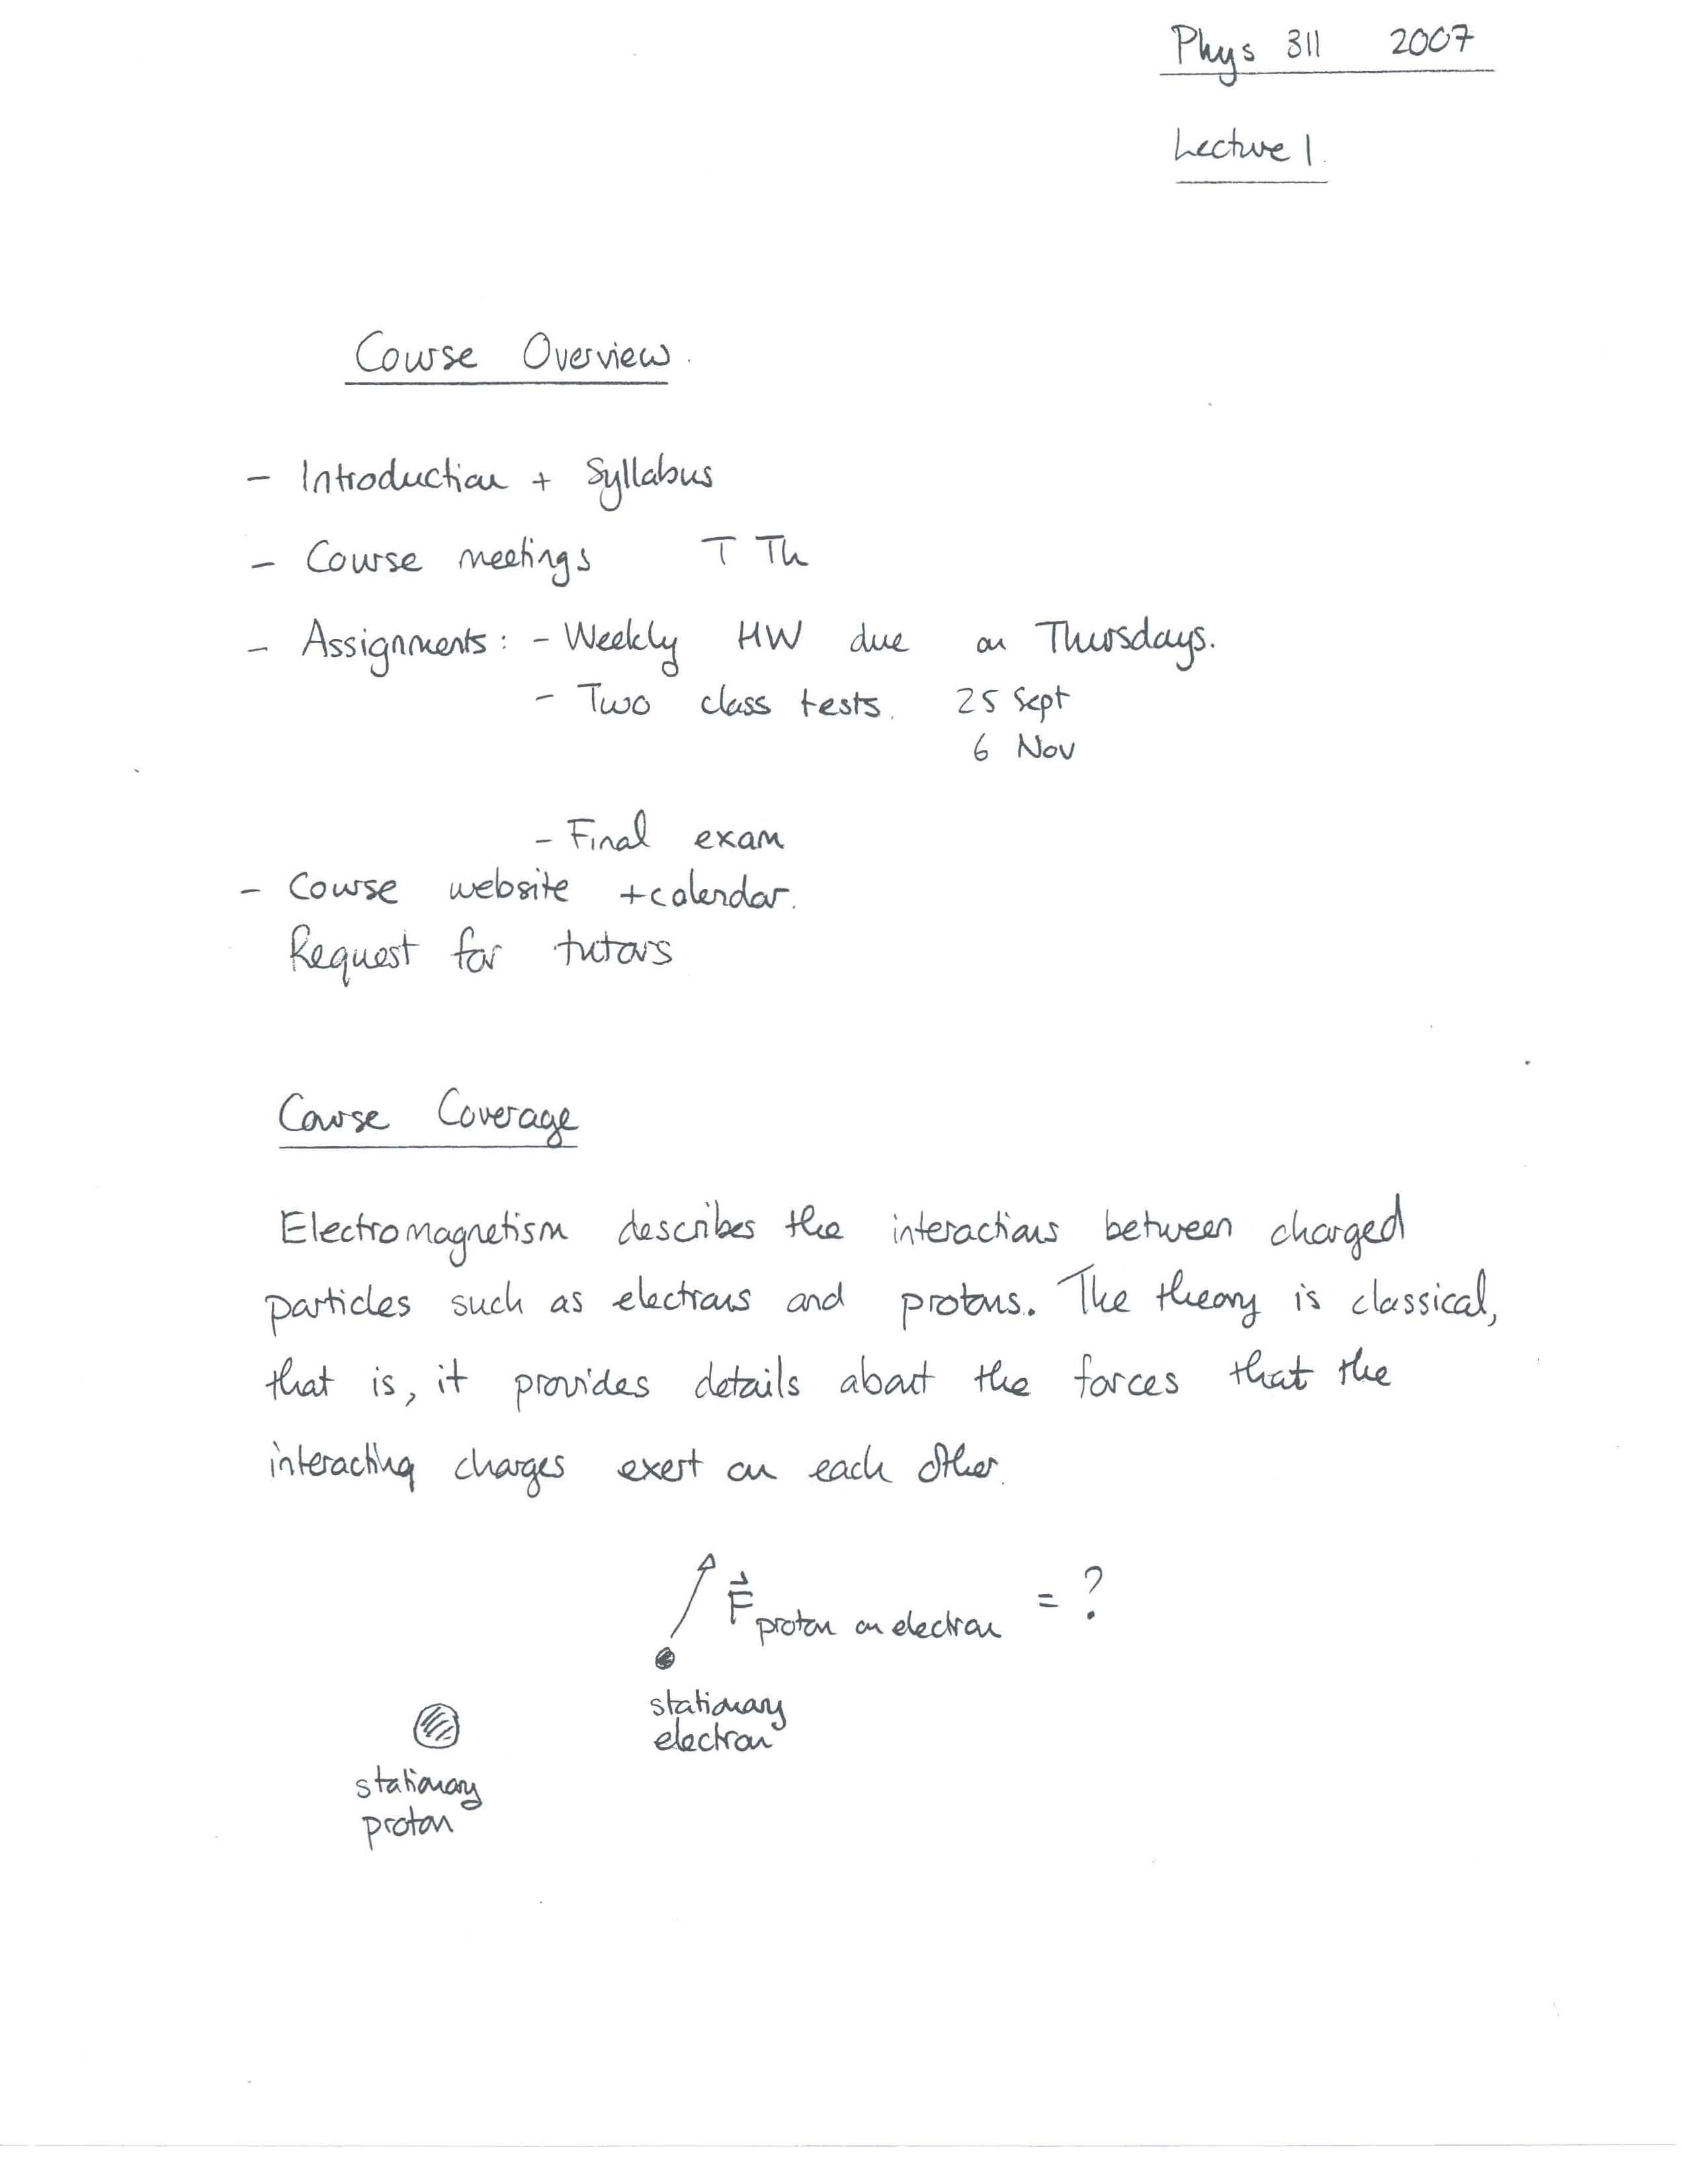 Phys 311 2007
Lecture 1.
Course Overview.
- Introduction + Syllabus
- Course meetings T Th
- Assignments: - Weekly HW due on Thursdays.
- Two class tests. 25 Sept
6 Nov
- Final exam
- Course website + calendar.
Request for tutors
Course Coverage
Electromagnetism describes the interactions between charged
particles such as electrons and protons. The theory is classical,
that is, it provides details about the forces that the
interacting charges exert on each other.
F⃗ proton on electron = ?
stationary
electron
stationary
proton